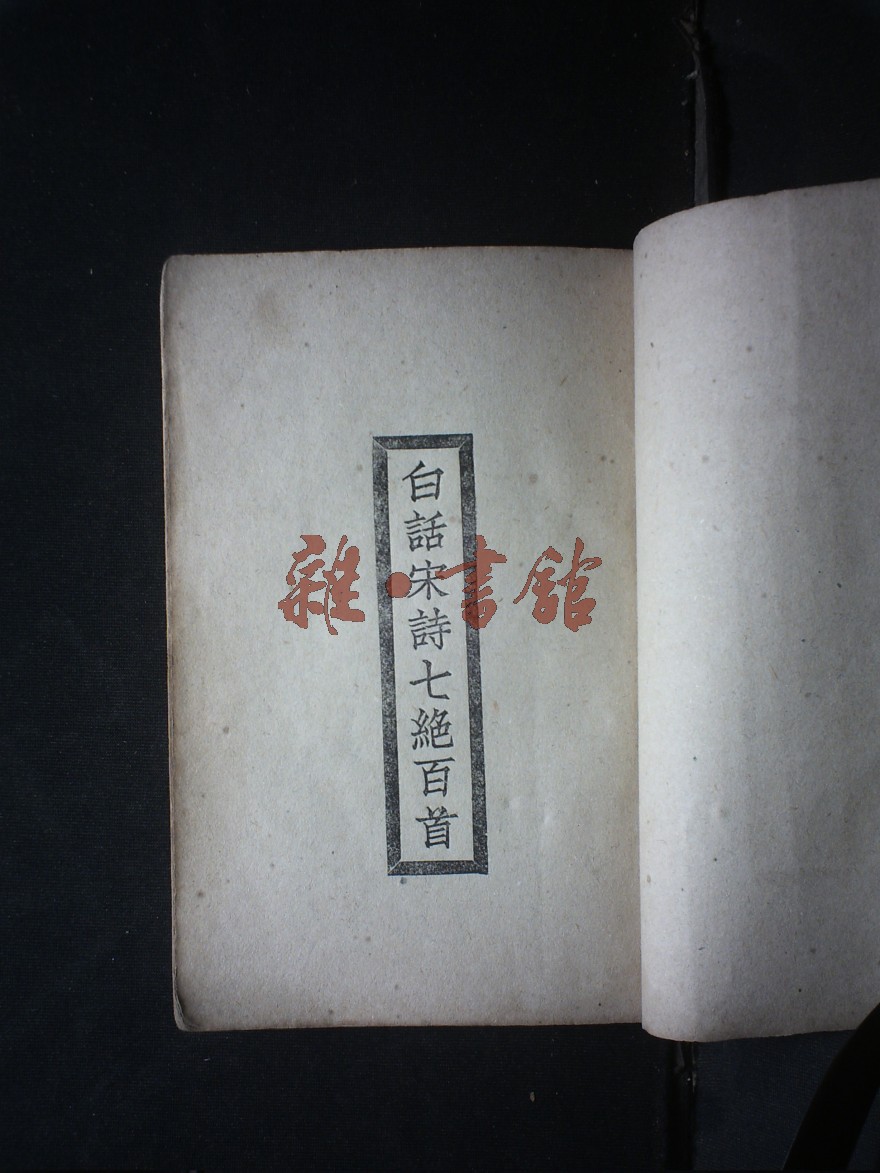 白話宋詩七絕百首
雜·書館